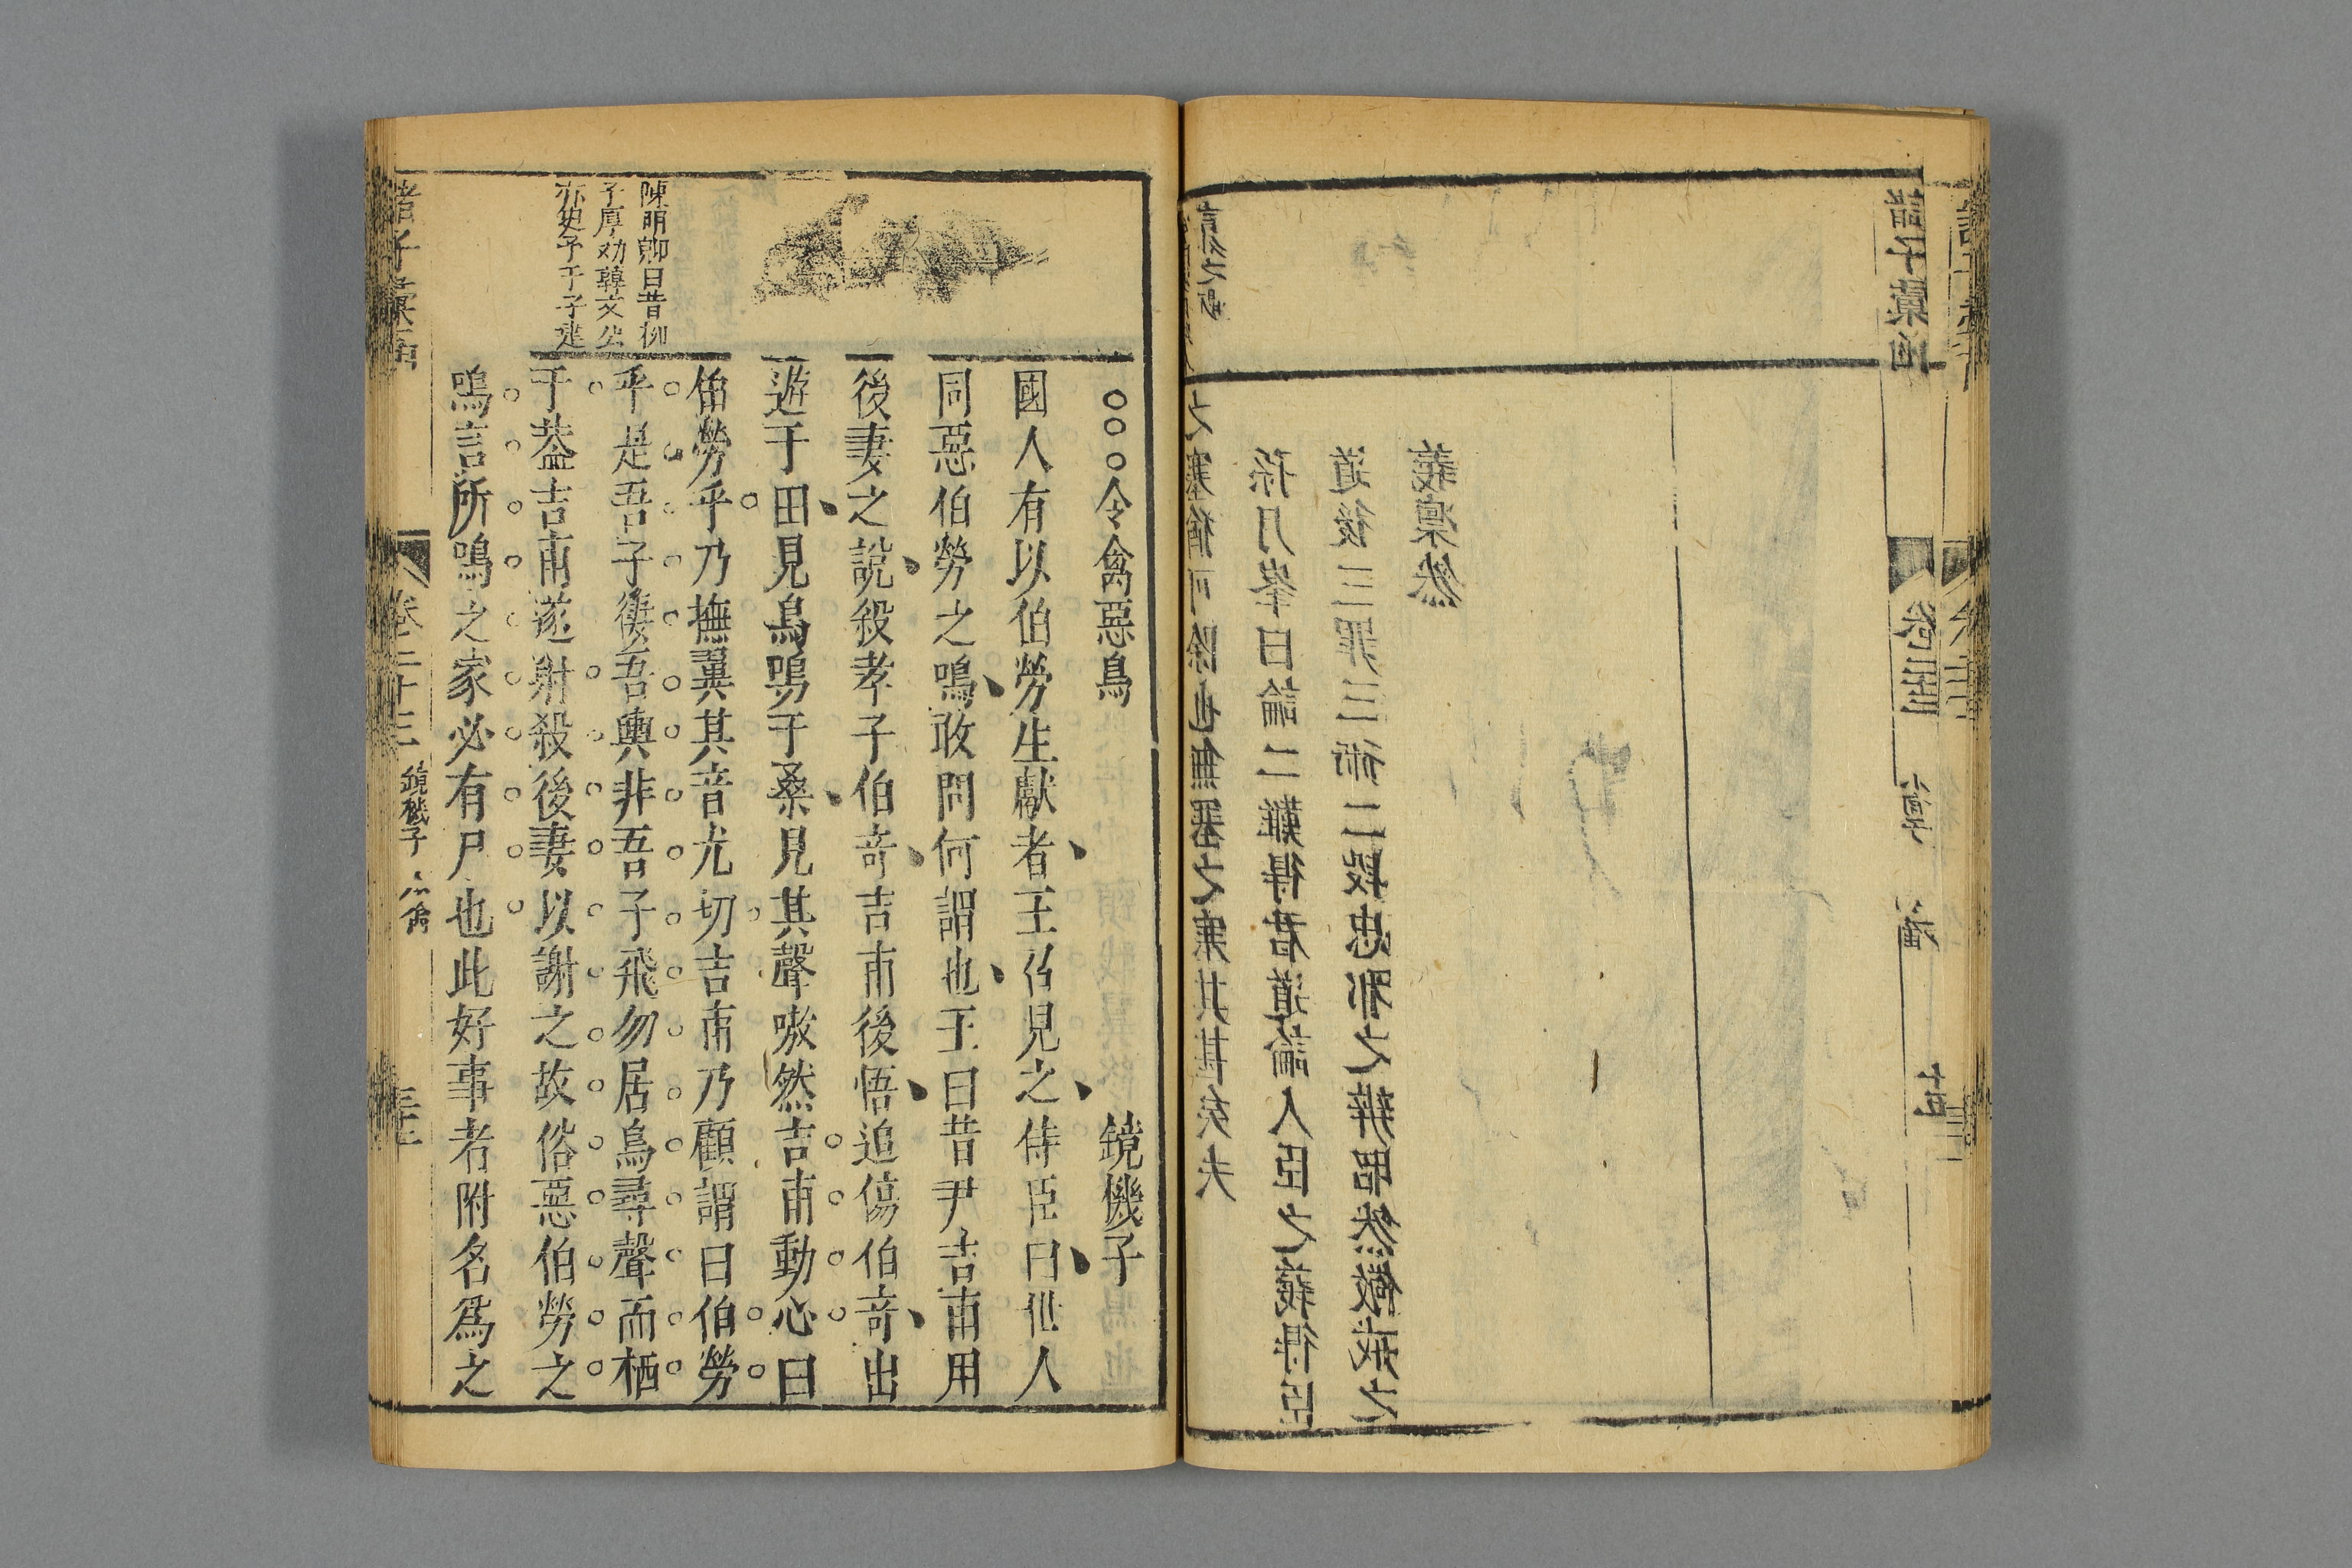 諸子彙函
卷二十三
孫月峯曰論二難得君道論人臣之義得臣
道後三罪三術二段忠邪之辨
義凛然
○○○令禽惡鳥 鏡機子
國人有以伯勞生獻者王召見之侍臣曰世人
同惡伯勞之鳴敢問何謂也王曰昔尹吉甫用
後妻之說殺孝子伯奇吉甫後悟追傷伯奇出
遊于田見鳥鳴于桑見其聲嗷然吉甫動心曰
伯勞乎乃撫翼其音尤切吉甫乃顧謂曰伯勞
乎是吾子棲吾輿非吾子飛勿居鳥尋聲而栖
于葢吉甫遂射殺後妻以謝之故俗惡伯勞之
鳴言所鳴之家必有尸也此好事者附名爲之
陳明卿曰昔柳
子厚劝韓文公
亦史予于子建
諸子彙函
卷二十三
鏡機子
令禽